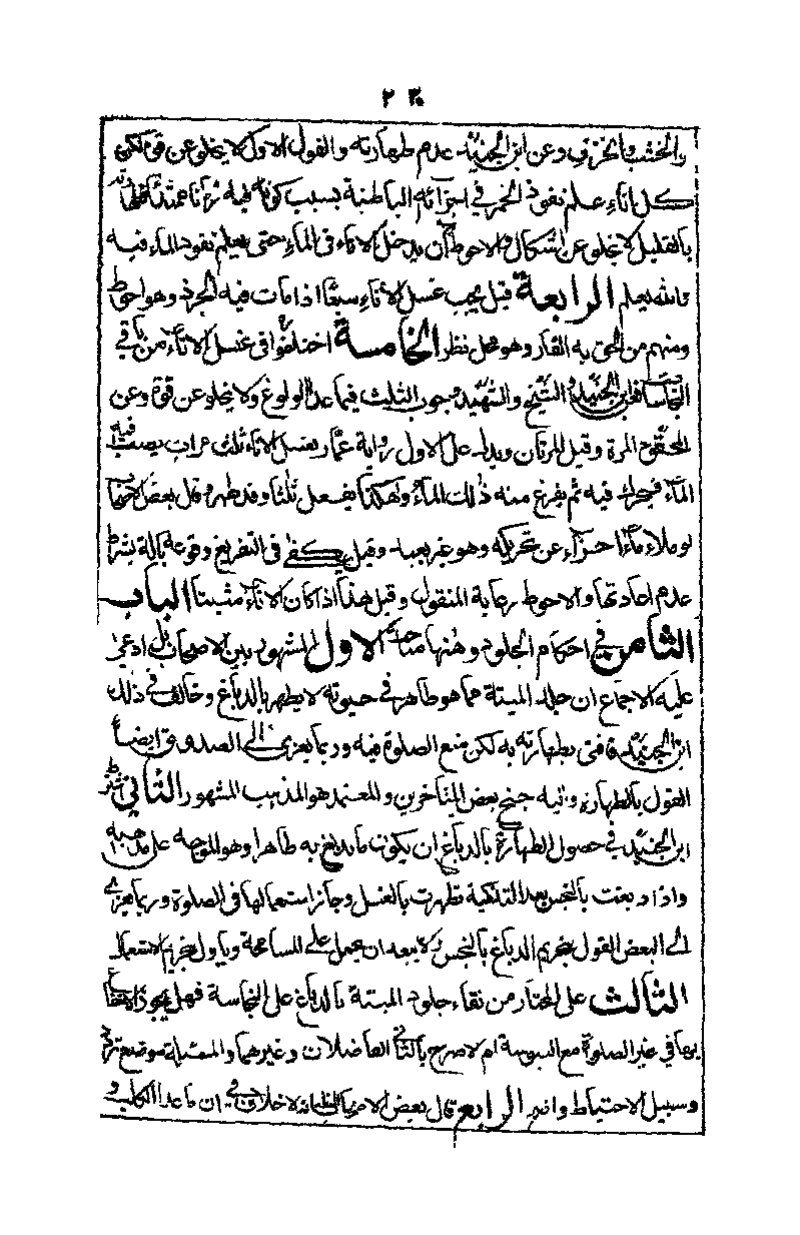 ٢٣٠
والخشب والخزف وعن ابن الجنيد عدم طهارته والقول الاول لا يخلو عن قوة لكن
كل اناء علم نفوذ الخمر في اجزائه الباطنة بسبب كونه فيه زمانا ممتدا
بالقليل لا يخلو عن اشكال والاحوط ان يدخل الاناء في الماء حتى يعلم نفوذ الماء فيه
والله يعلم الرابعة قيل يجب غسل الاناء سبعا اذا مات فيه الجرذ وهو احوط
ومنهم من الحق به الفار وهو محل نظر الخامسة اختلفوا في غسل الاناء من باقي
النجاسات فابن الجنيد والشيخ والشهيد بوجوب الثلث فيما عدا الولوغ ولا يخلو عن قوة وعن
المحقق المرة وقيل المرتان ويدل على الاول رواية عمار يغسل الاناء ثلث مرات يصب فيه
الماء فيحرك فيه ثم يفرغ منه ذلك الماء وهكذا يفعل ثلثا وقد طهر وقال بعض الاصحاب
لو ملاءه ماءا اجزاء عن تحريكه وهو غير بعيد وقيل يكفي في التفريغ وقوعه بالة بشرط
عدم اعادتها والاحوط رعاية المنقول وقيل هذا اذا كان الاناء مثبتا الباب
الثامن في احكام الجلود وهنها مباحث الاول المشهور بين الاصحاب بل ادعي
عليه الاجماع ان جلد الميتة مما هو طاهر في حيوته لا يطهر بالدباغ وخالف في ذلك
ابن الجنيد فافتى بطهارته به لكن منع الصلوة فيه وربما يعزى الى الصدوق ايضا
القول بالطهارة واليه جنح بعض المتاخرين والمعتمد هو المذهب المشهور الثاني اشترط
ابن الجنيد في حصول الطهارة بالدباغ ان يكون ما يدبغ به طاهرا وهو الموجه على مذهبه
واذا دبغت بالنجس بعد التذكية طهرت بالغسل وجاز استعمالها في الصلوة وربما يعزى
الى البعض القول بتحريم الدباغ بالنجس ولا يبعد ان يحمل على المسامحة وياول بتحريم الاستعمال
الثالث على المختار من بقاء جلود الميتة بالدباغ على النجاسة فهل يجوز الانتفاع
بها في غير الصلوة مع اليبوسة ام لا صرح بالثاني الفاضلان وغيرهما والمسئلة موضع تردد
وسبيل الاحتياط واضح الرابع قال بعض الاصحاب لا خلاف في ان ما عدا الكلب و